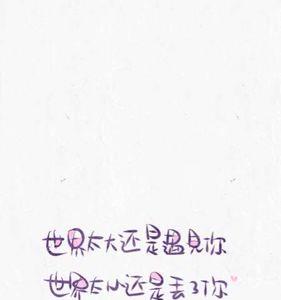 世界太大还是遇見你
世界太小还是丢了你